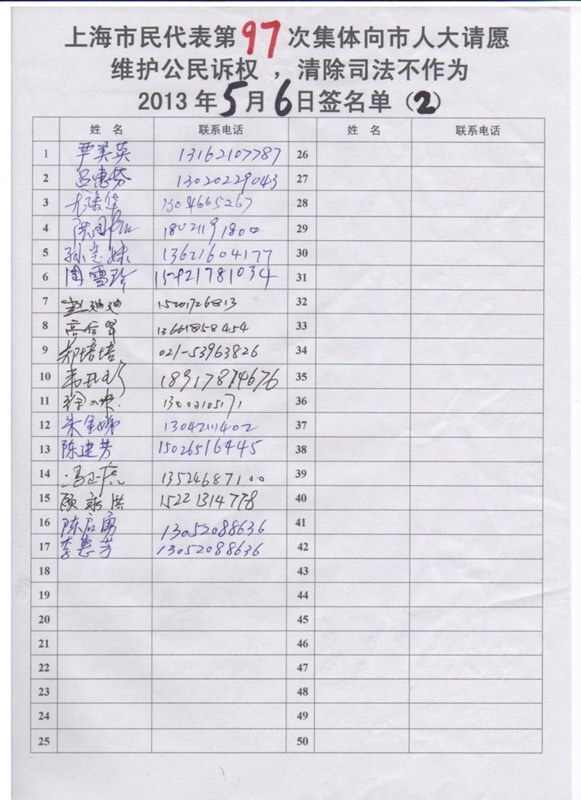 上海市民代表第97次集体向市人大请愿
维护公民诉权，清除司法不作为
2013年5月6日签名单（2）
姓 名 联系电话 姓 名 联系电话
1 严美英 13162107787 26
2 吕惠芬 13020229043 27
3 1304665267 28
4 18021191800 29
5 孙宝妹 13621604177 30
6 周雪珍 15921781034 31
7 赵迪迪 15201726813 32
8 13661858454 33
9 郑培培 021-53963826 34
10 18917814676 35
11 36
12 朱金娣 13042111402 37
13 陈建芳 15026516445 38
14 冯正虎 13524687100 39
15 顾新洪 15221314778 40
16 陈启勇 13052088636 41
17 李惠芳 13052088636 42
18 43
19 44
20 45
21 46
22 47
23 48
24 49
25 50